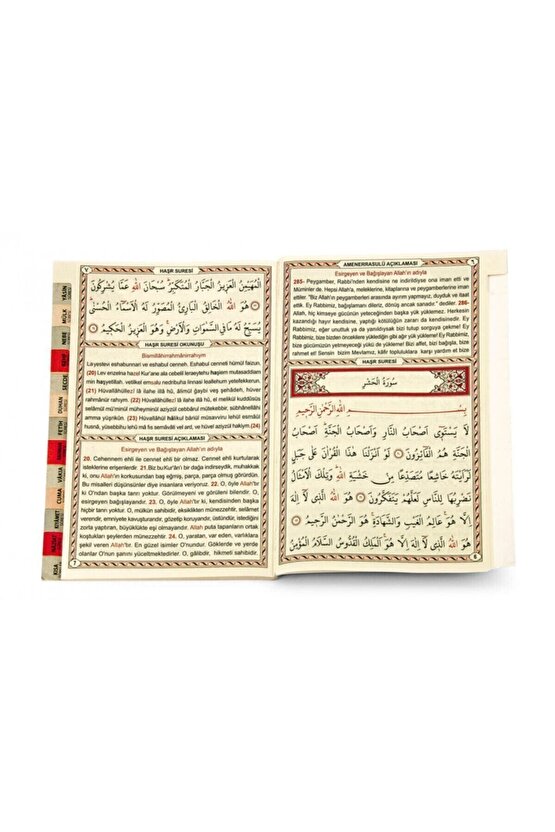 ٧
HAŞR SURESİ
الْمُهَيْمِنُ الْعَزِيزُ الْجَبَّارُ الْمُتَكَبِّرُ سُبْحَانَ اللّٰهِ عَمَّا يُشْرِكُونَ
هُوَ اللّٰهُ الْخَالِقُ الْبَارِئُ الْمُصَوِّرُ لَهُ الْاَسْمَاءُ الْحُسْنٰى
يُسَبِّحُ لَهُ مَا فِي السَّمٰوَاتِ وَالْاَرْضِ وَهُوَ الْعَزِيزُ الْحَكِيمُ
HAŞR SURESİ OKUNUŞU
Bismillâhirrahmânirrahym
Lâ yestevi eshabunnari ve eshabul cenneh. Eshabul cenneti hümül faizun.
(20) Lev enzelna haza! Kur'ane ala cebelil leraeytehu haşiem mutasaddiam
min haşyetillah. vetilkel emsalu nedribuha linnasi leallehum yetefekkerun.
(21) Hüvallâhüllezî lâ ilahe illâ hû, âlimül ğaybi veş şehâdeh, hüver
rahmânür rahym. (22) Hüvallâhüllezî lâ ilahe illâ hû, el melikül kuddûsüs
selâmül mü'minül müheyminül azîzül cebbârul mütekebbir, sübhânellâhi
amma yüşrikûn. (23) Hüvallâhül hâlikul bâriül müsavviru lehül esmâül
husnâ, yüsebbihu lehû mâ fis semâvâti vel ard, ve hüvel azîzül hakiym.(24)
HAŞR SURESİ AÇIKLAMASI
Esirgeyen ve Bağışlayan Allah'ın adıyla
20. Cehennem ehli ile cennet ehli bir olmaz. Cennet ehli kurtularak
isteklerine erişenlerdir. 21.Biz bu Kur'ân'ı bir dağa indirseydik, muhakkak
ki, onu Allah'ın korkusundan baş eğmiş, parça, parça olmuş görürdün.
Bu misalleri düşünsünler diye insanlara veriyoruz. 22. O, öyle Allah'tır
ki O'ndan başka tanrı yoktur. Görülmeyeni ve görüleni bilendir. O,
esirgeyen bağışlayandır. 23. O, öyle Allah'tır ki, kendisinden başka
hiçbir tanrı yoktur. O, mülkün sahibidir, eksiklikten münezzehtir, selâmet
verendir, emniyete kavuşturandır, gözetip koruyandır, üstündür, istediğini
zorla yaptıran, büyüklükte eşi olmayandır. Allah puta tapanların ortak
koştukları şeylerden münezzehtir. 24. O, yaratan, var eden, varlıklara
şekil veren Allah'tır. En güzel isimler O'nundur. Göklerde ve yerde
olanlar O'nun şanını yüceltmektedirler. O, gâlibdir, hikmeti sahibidir.
7
YÂSİN
MÜLK
NEBE
KEHF
SECDE
DUHAN
FETİH
RAHMAN
VÂKIA
CUMA
KIYÂMET
KISA
AMENERRASULÜ AÇIKLAMASI
٦
Esirgeyen ve Bağışlayan Allah'ın adıyla
285- Peygamber, Rabbi'nden kendisine ne indirildiyse ona iman etti ve
Müminler de. Hepsi Allah'a, meleklerine, kitaplarına ve peygamberlerine iman
ettiler. "Biz Allah'ın peygamberleri arasında ayırım yapmayız, duyduk ve itaat
ettik. Ey Rabbimiz, bağışlamanı dileriz, dönüş ancak sanadır." dediler. 286-
Allah, hiç kimseye gücünün yeteceğinden başka yük yüklemez. Herkesin
kazandığı hayır kendisine, yaptığı kötülüğün zararı da kendisinedir. Ey
Rabbimiz, eğer unuttuk ya da yanıldıysak bizi tutup sorguya çekme! Ey
Rabbimiz, bize bizden öncekilere yüklediğin gibi ağır yük yükleme! Ey Rabbimiz,
bize gücümüzün yetmeyeceği yükü de yükleme! Bizi affet, bizi bağışla, bize
rahmet et! Sensin bizim Mevlamız, kâfir topluluklara karşı yardım et bize
HAŞR SURESİ
سُورَةُ الْحَشْرِ
بِسْمِ اللّٰهِ الرَّحْمٰنِ الرَّحِيمِ
لَا يَسْتَوِى اَصْحَابُ النَّارِ وَاَصْحَابُ الْجَنَّةِ اَصْحَابُ
الْجَنَّةِ هُمُ الْفَائِزُونَ لَوْ اَنْزَلْنَا هٰذَا الْقُرْاٰنَ عَلٰى جَبَلٍ
لَرَاَيْتَهُ خَاشِعًا مُتَصَدِّعًا مِنْ خَشْيَةِ اللّٰهِ وَتِلْكَ الْاَمْثَالُ
نَضْرِبُهَا لِلنَّاسِ لَعَلَّهُمْ يَتَفَكَّرُونَ هُوَ اللّٰهُ الَّذِى لَا اِلٰهَ
اِلَّا هُوَ عَالِمُ الْغَيْبِ وَالشَّهَادَةِ هُوَ الرَّحْمٰنُ الرَّحِيمُ
هُوَ اللّٰهُ الَّذِى لَا اِلٰهَ اِلَّا هُوَ اَلْمَلِكُ الْقُدُّوسُ السَّلَامُ الْمُؤْمِنُ
6